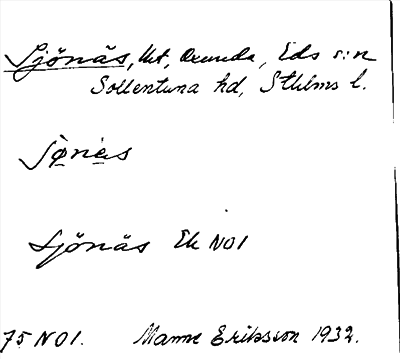 Sjönäs, lht, Oxunda, Eds s:n
Sollentuna hd, Sthlms l.
Sønes
Sjönäs Ek N01
75 N01. Manne Eriksson 1932.